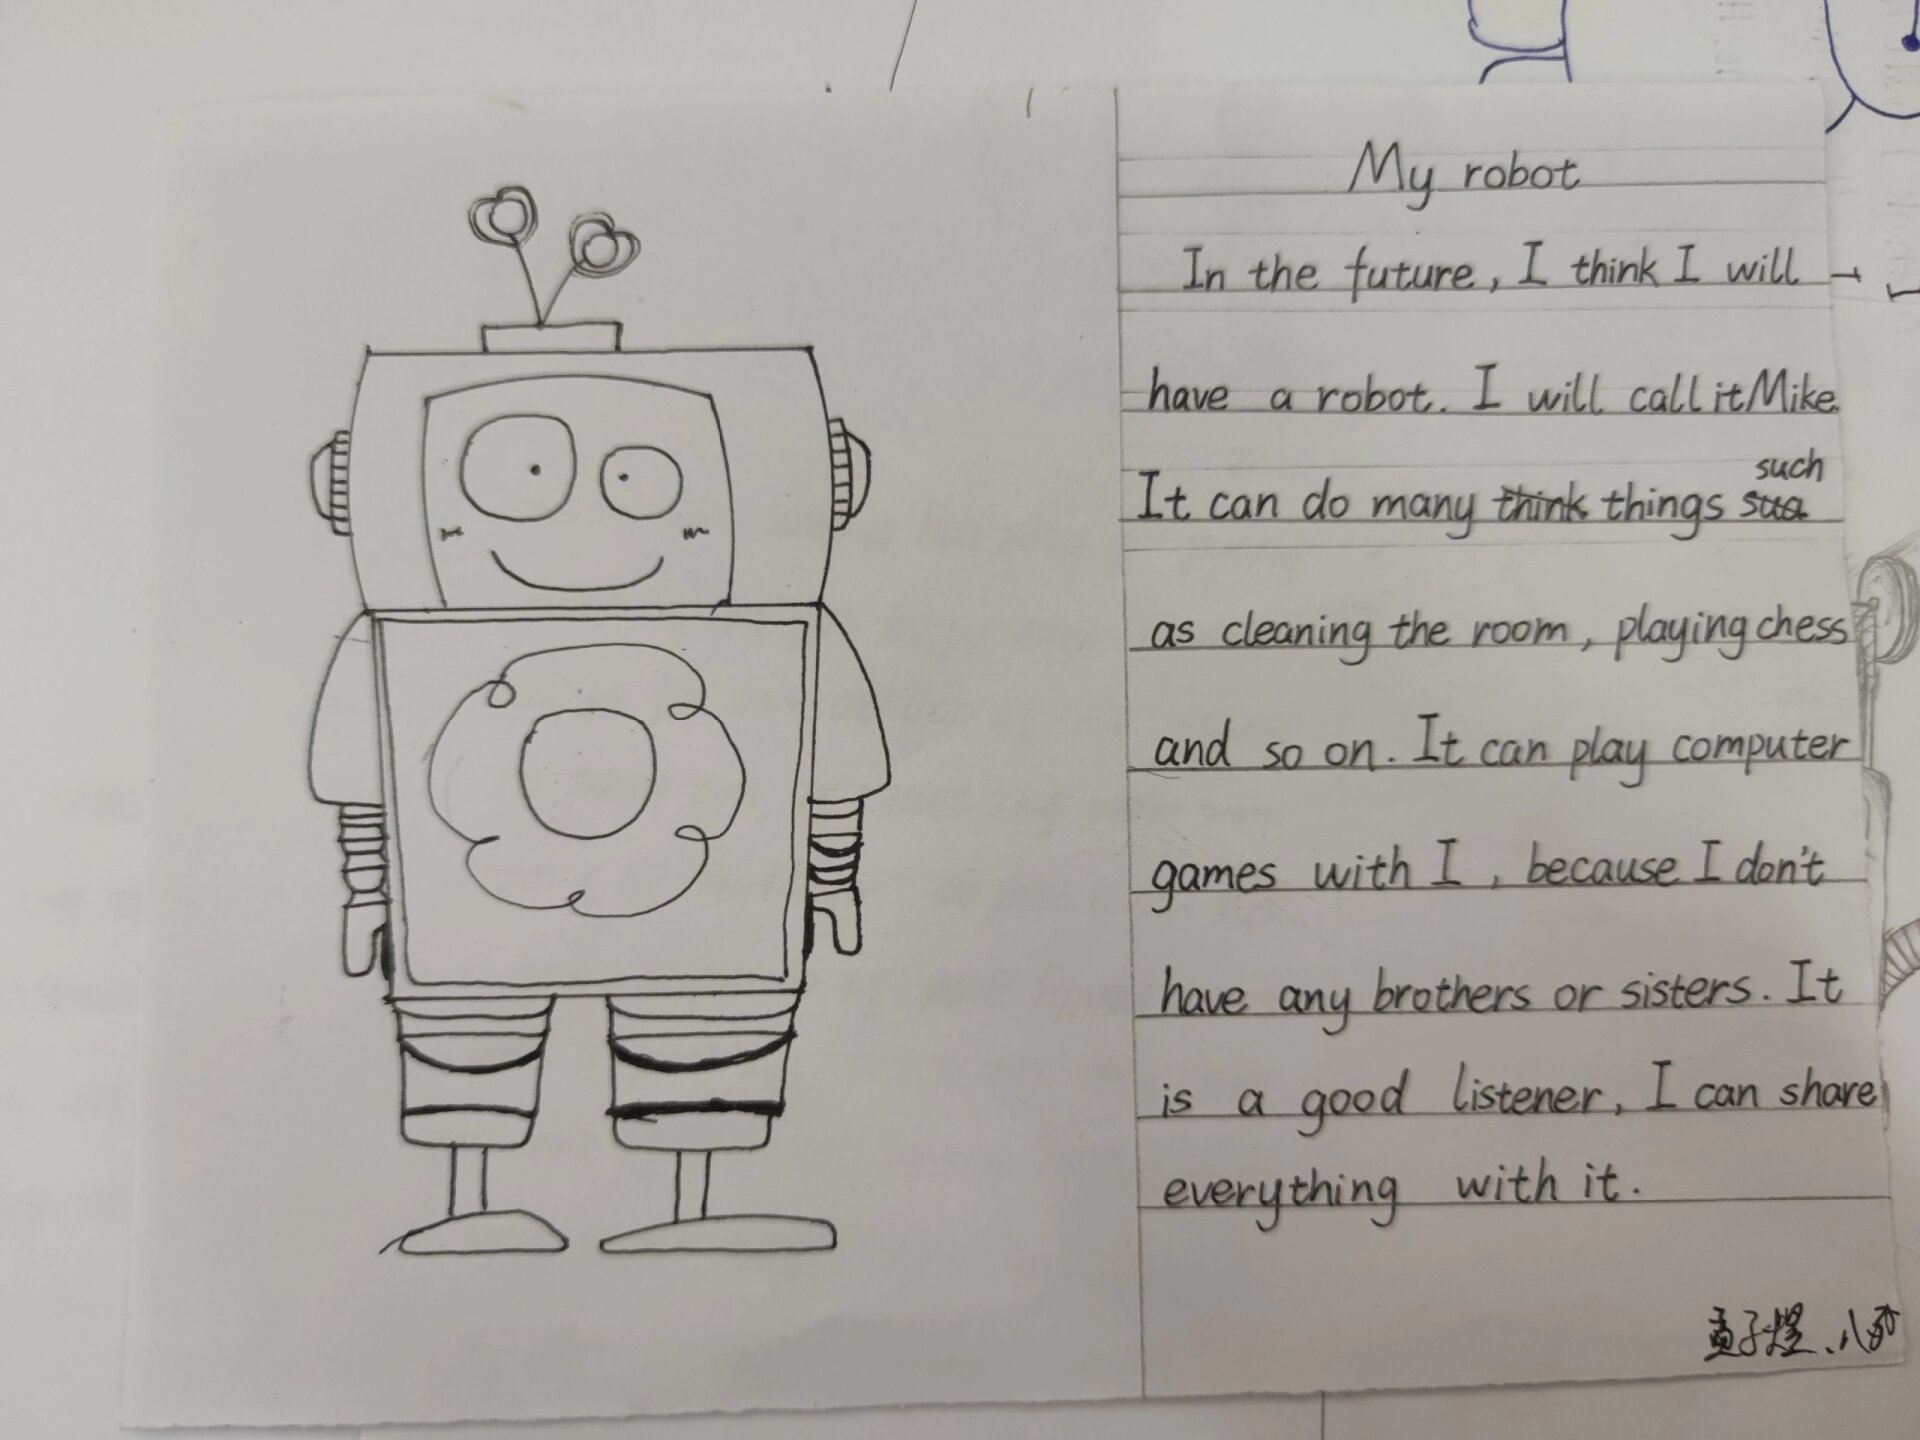 My robot
In the future, I think I will
have a robot. I will call it Mike.
It can do many think things sua such
as cleaning the room, playing chess
and so on. It can play computer
games with I, because I don't
have any brothers or sisters. It
is a good listener, I can share
everything with it.